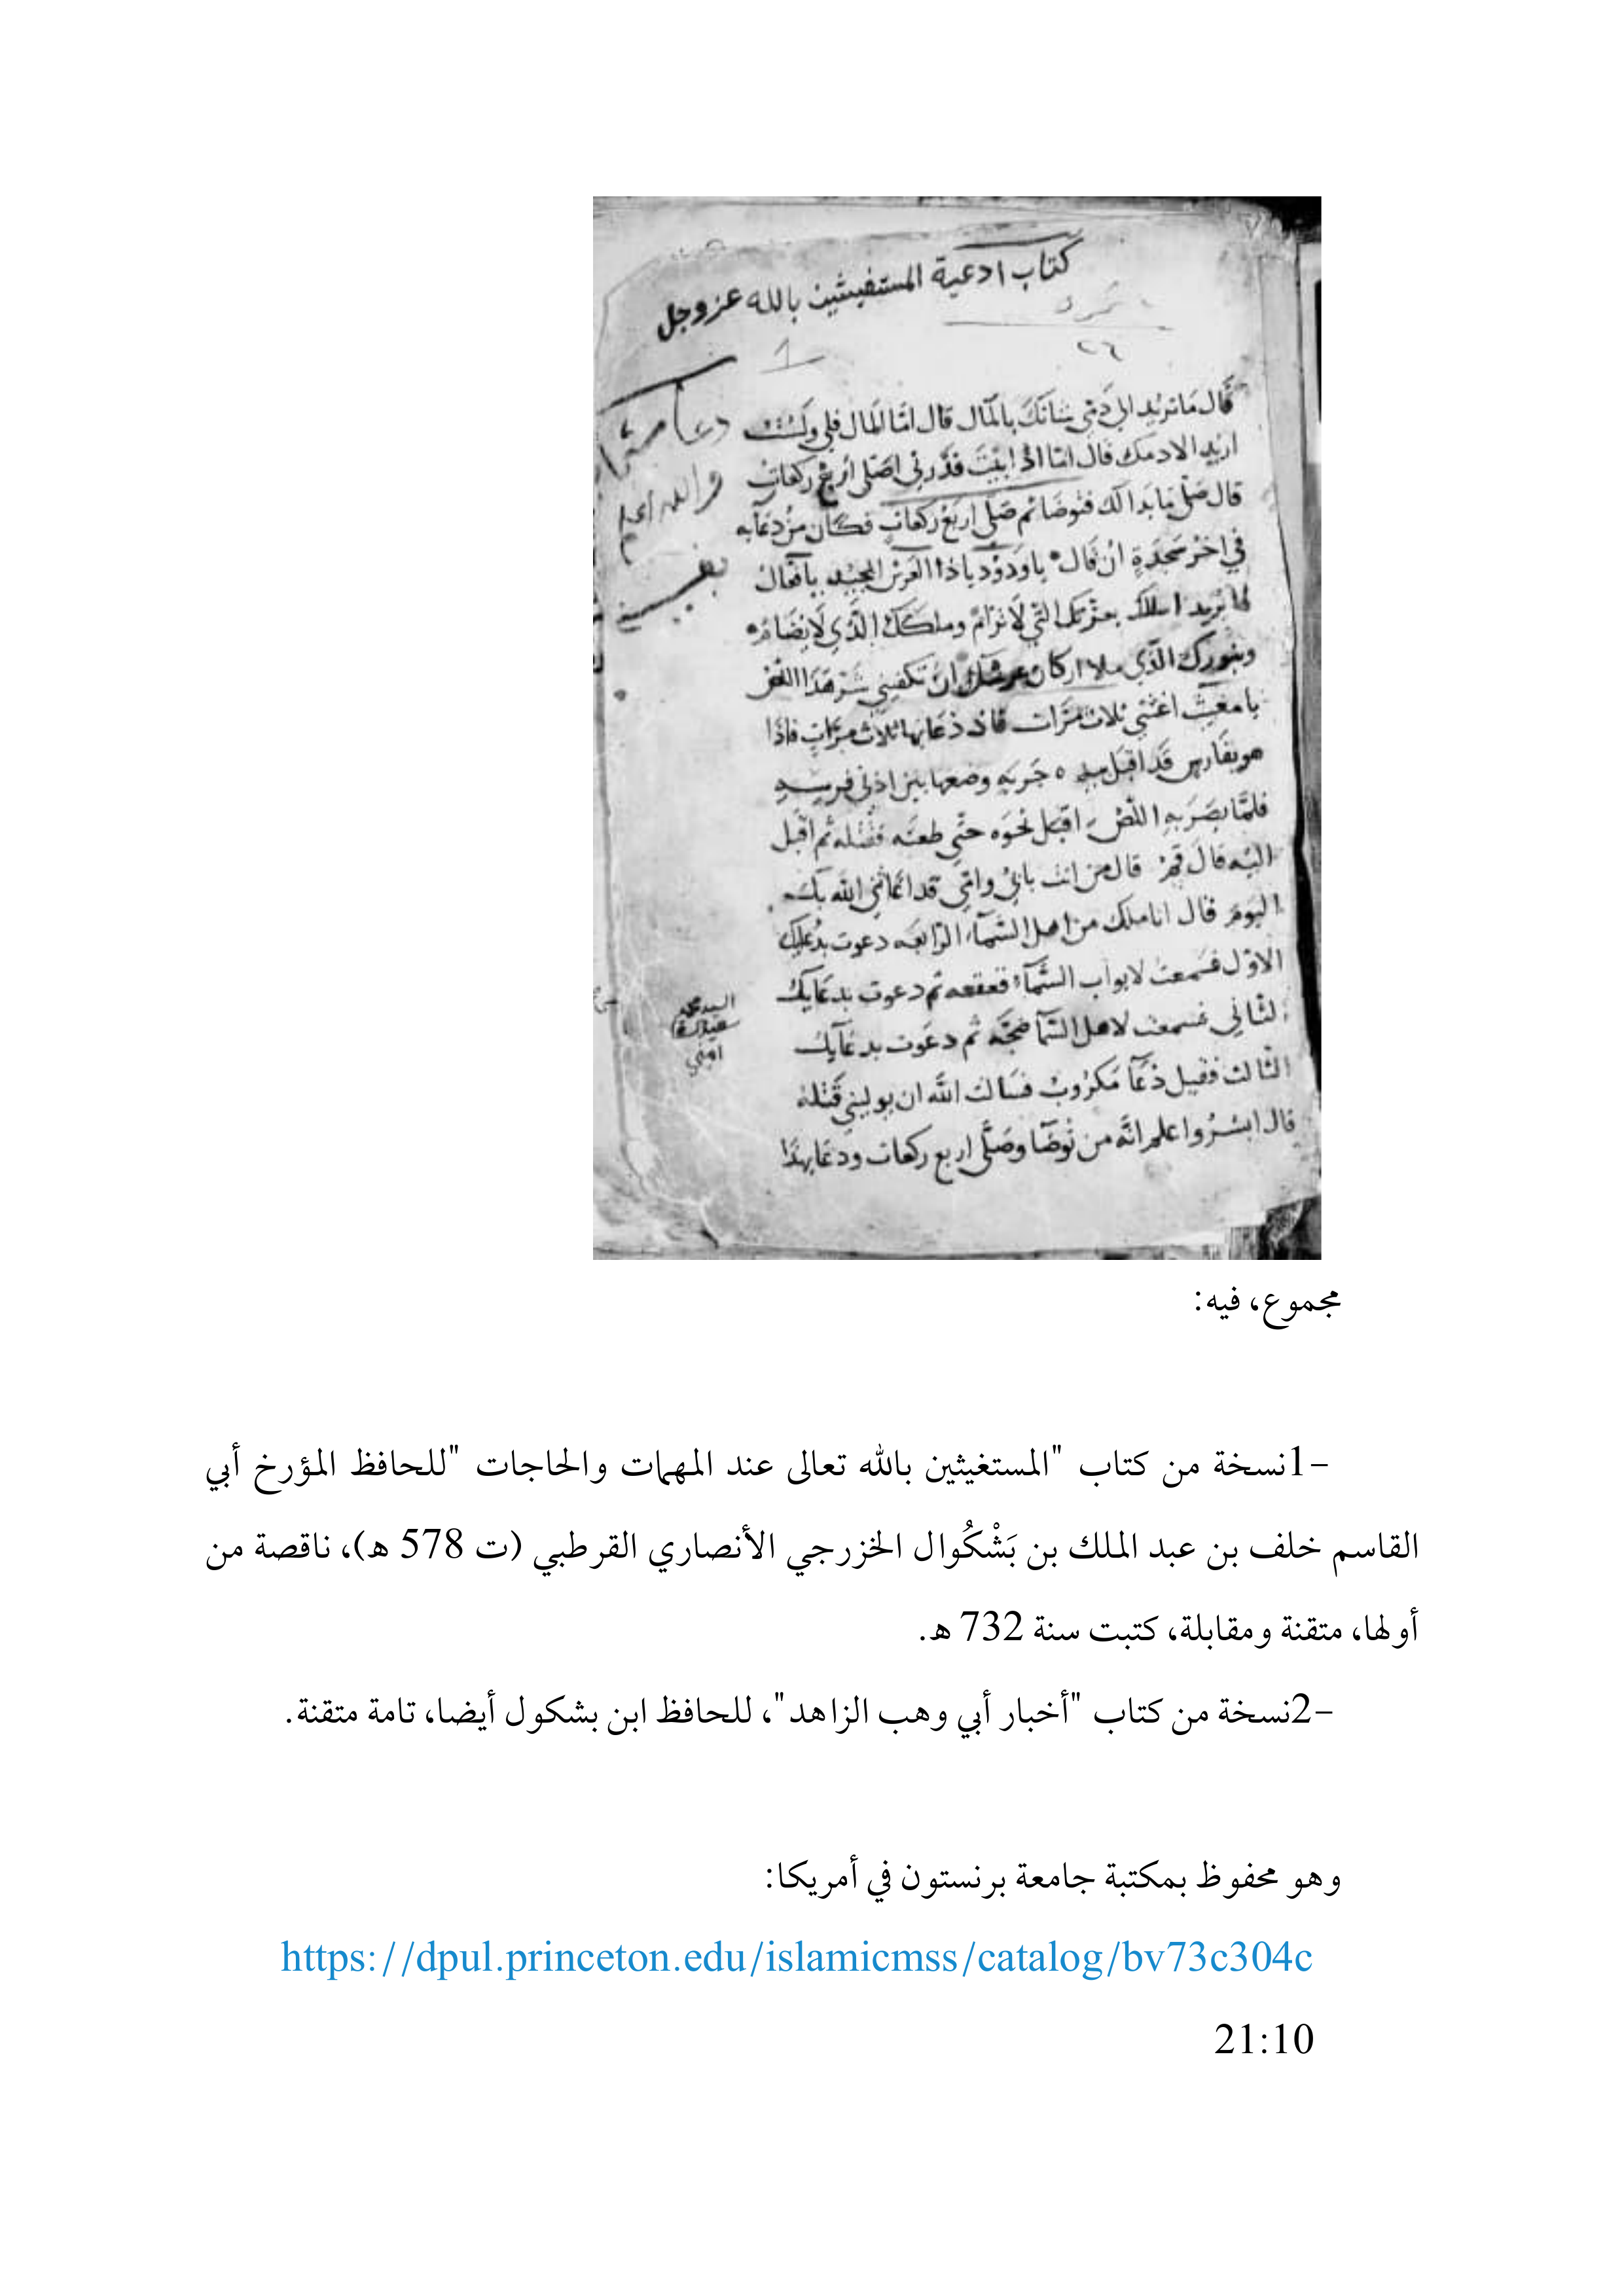 كتاب ادعية المستغيثين بالله عز وجل
٢٦
1
قَال مَا تريد الى دَمِي شانَكَ بالمَال قال امّا المَال فلي وَلَسْتُ
اريد الا دمك قال امّا اذا ابَيْتَ فذَرني اصَلى أربع ركعاتٍ
قال صَلّ مَا بَدا لكَ فتوضا ثم صَلّى اربَعَ ركعاتٍ فكان من دعَآيه
في اخر سَجدَةٍ ان قال يا ودود يا ذا العَرش المجيد يا فعال
لما يُريد اسلك بعزتك التي لا تُرامُ وملكك الّذي لا يُضَام
وبنورك الّذي ملا اركان عرشك ان تكفيني شر هَذا اللص
يا مغيث اغثني ثلاث مَرّات قال دعَا بها ثلاث مرّات فاذا
هو بفارس قد اقبل بيده حَربَه وضعها بين اذني فرسه
فلمّا بصَر به اللصّ اقبَل نحوَه حتّى طعنَه فقتله ثم اقبَل
اليه فال قم قال من انت بابي وامّي قد اغاثني الله بك
اليوم قال انا ملك من اهل السّمآء الرّابعَه دعوت بدعايك
الاوّل فسَمعت لابواب السّمآء قعقعه ثم دعوت بدعَآيك
الثّاني فسمعت لاهل السّمآ ضجّه ثم دعَوت بدعَآيك
الثّالث فقيل دعَآ مَكرُوب فسَالت الله ان يوليني قتله
قال ابشر واعلم انّه من توضّا وصَلّى اربع ركعات ودعَا بهذا
السيد محمد
مجموع، فيه:
-1نسخة من كتاب "المستغيثين بالله تعالى عند المهمات والحاجات "للحافظ المؤرخ أبي
القاسم خلف بن عبد الملك بن بَشْكُوال الخزرجي الأنصاري القرطبي (ت 578 ه)، ناقصة من
أولها، متقنة ومقابلة، كتبت سنة 732 ه.
-2نسخة من كتاب "أخبار أبي وهب الزاهد"، للحافظ ابن بشكول أيضا، تامة متقنة.
وهو محفوظ بمكتبة جامعة برنستون في أمريكا:
https://dpul.princeton.edu/islamicmss/catalog/bv73c304c
21:10